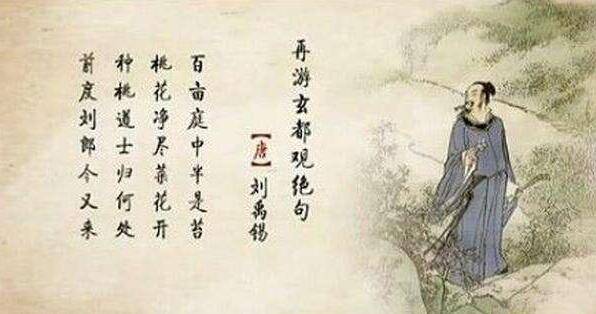 再游玄都观绝句
【唐】刘禹锡
百亩庭中半是苔
桃花净尽菜花开
种桃道士归何处
前度刘郎今又来